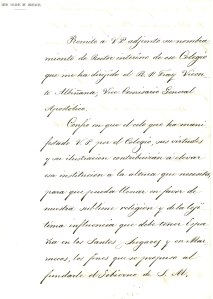 Remito a V. P. adjunto su nombra
miento de Rector interino de su Colegio
que me ha dirijido el R. P. Fray Vicen
te Albiñana, Vice Comisario General
Apostolico.
Confio en que el celo que ha mani
festado V. P. por el Colegio, sus virtudes
y su ilustracion contribuirán a elevar
esa institucion á la altura que necesita,
para que pueda llenar en favor de
nuestra sublime religion y de la legi
tima influencia que debe tener Espa
ña en los Santos Lugares y en Mar
ruecos, los fines que se propuso al
fundarle el Gobierno de S. M.